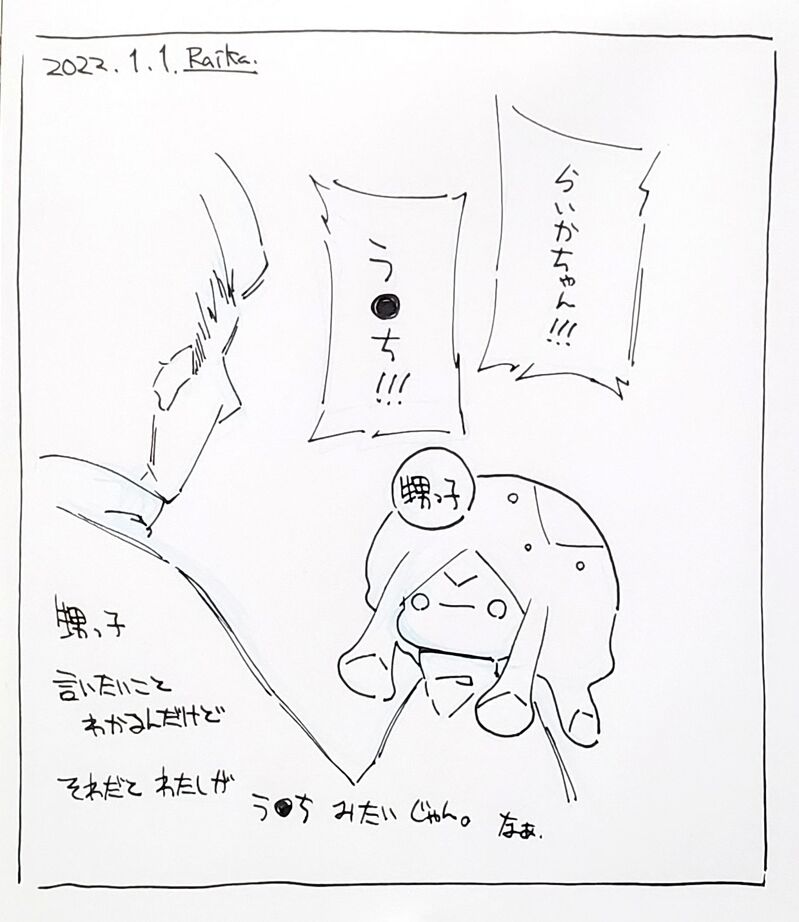 2022.1.1. Raika.
らいかちゃん!!!
う●ち!!!
甥っ子
甥っ子
言いたいこと
わかるんだけど
それだと わたしが
う●ち みたいじゃん。 なぁ.